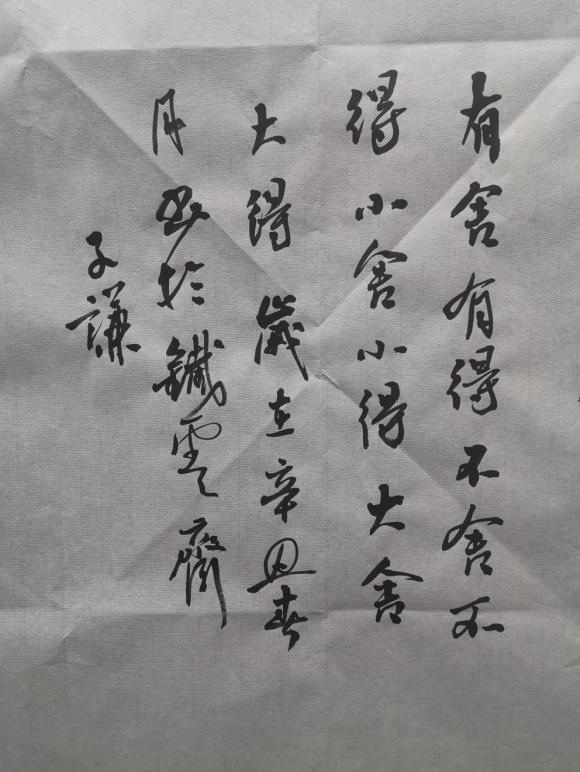 有舍有得不舍不
得小舍小得大舍
大得 歲在辛丑春
月書於鐵雲齋
子謙